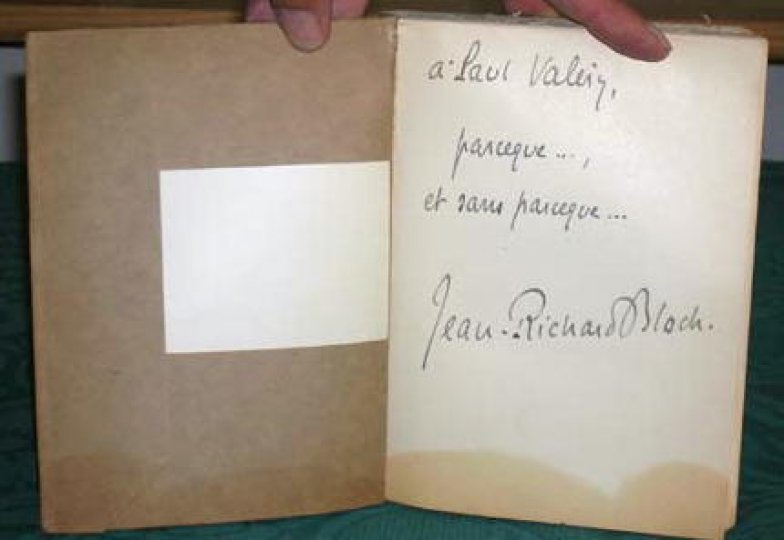 à Paul Valéry,
parceque...,
et sans parceque...
Jean-Richard Bloch.